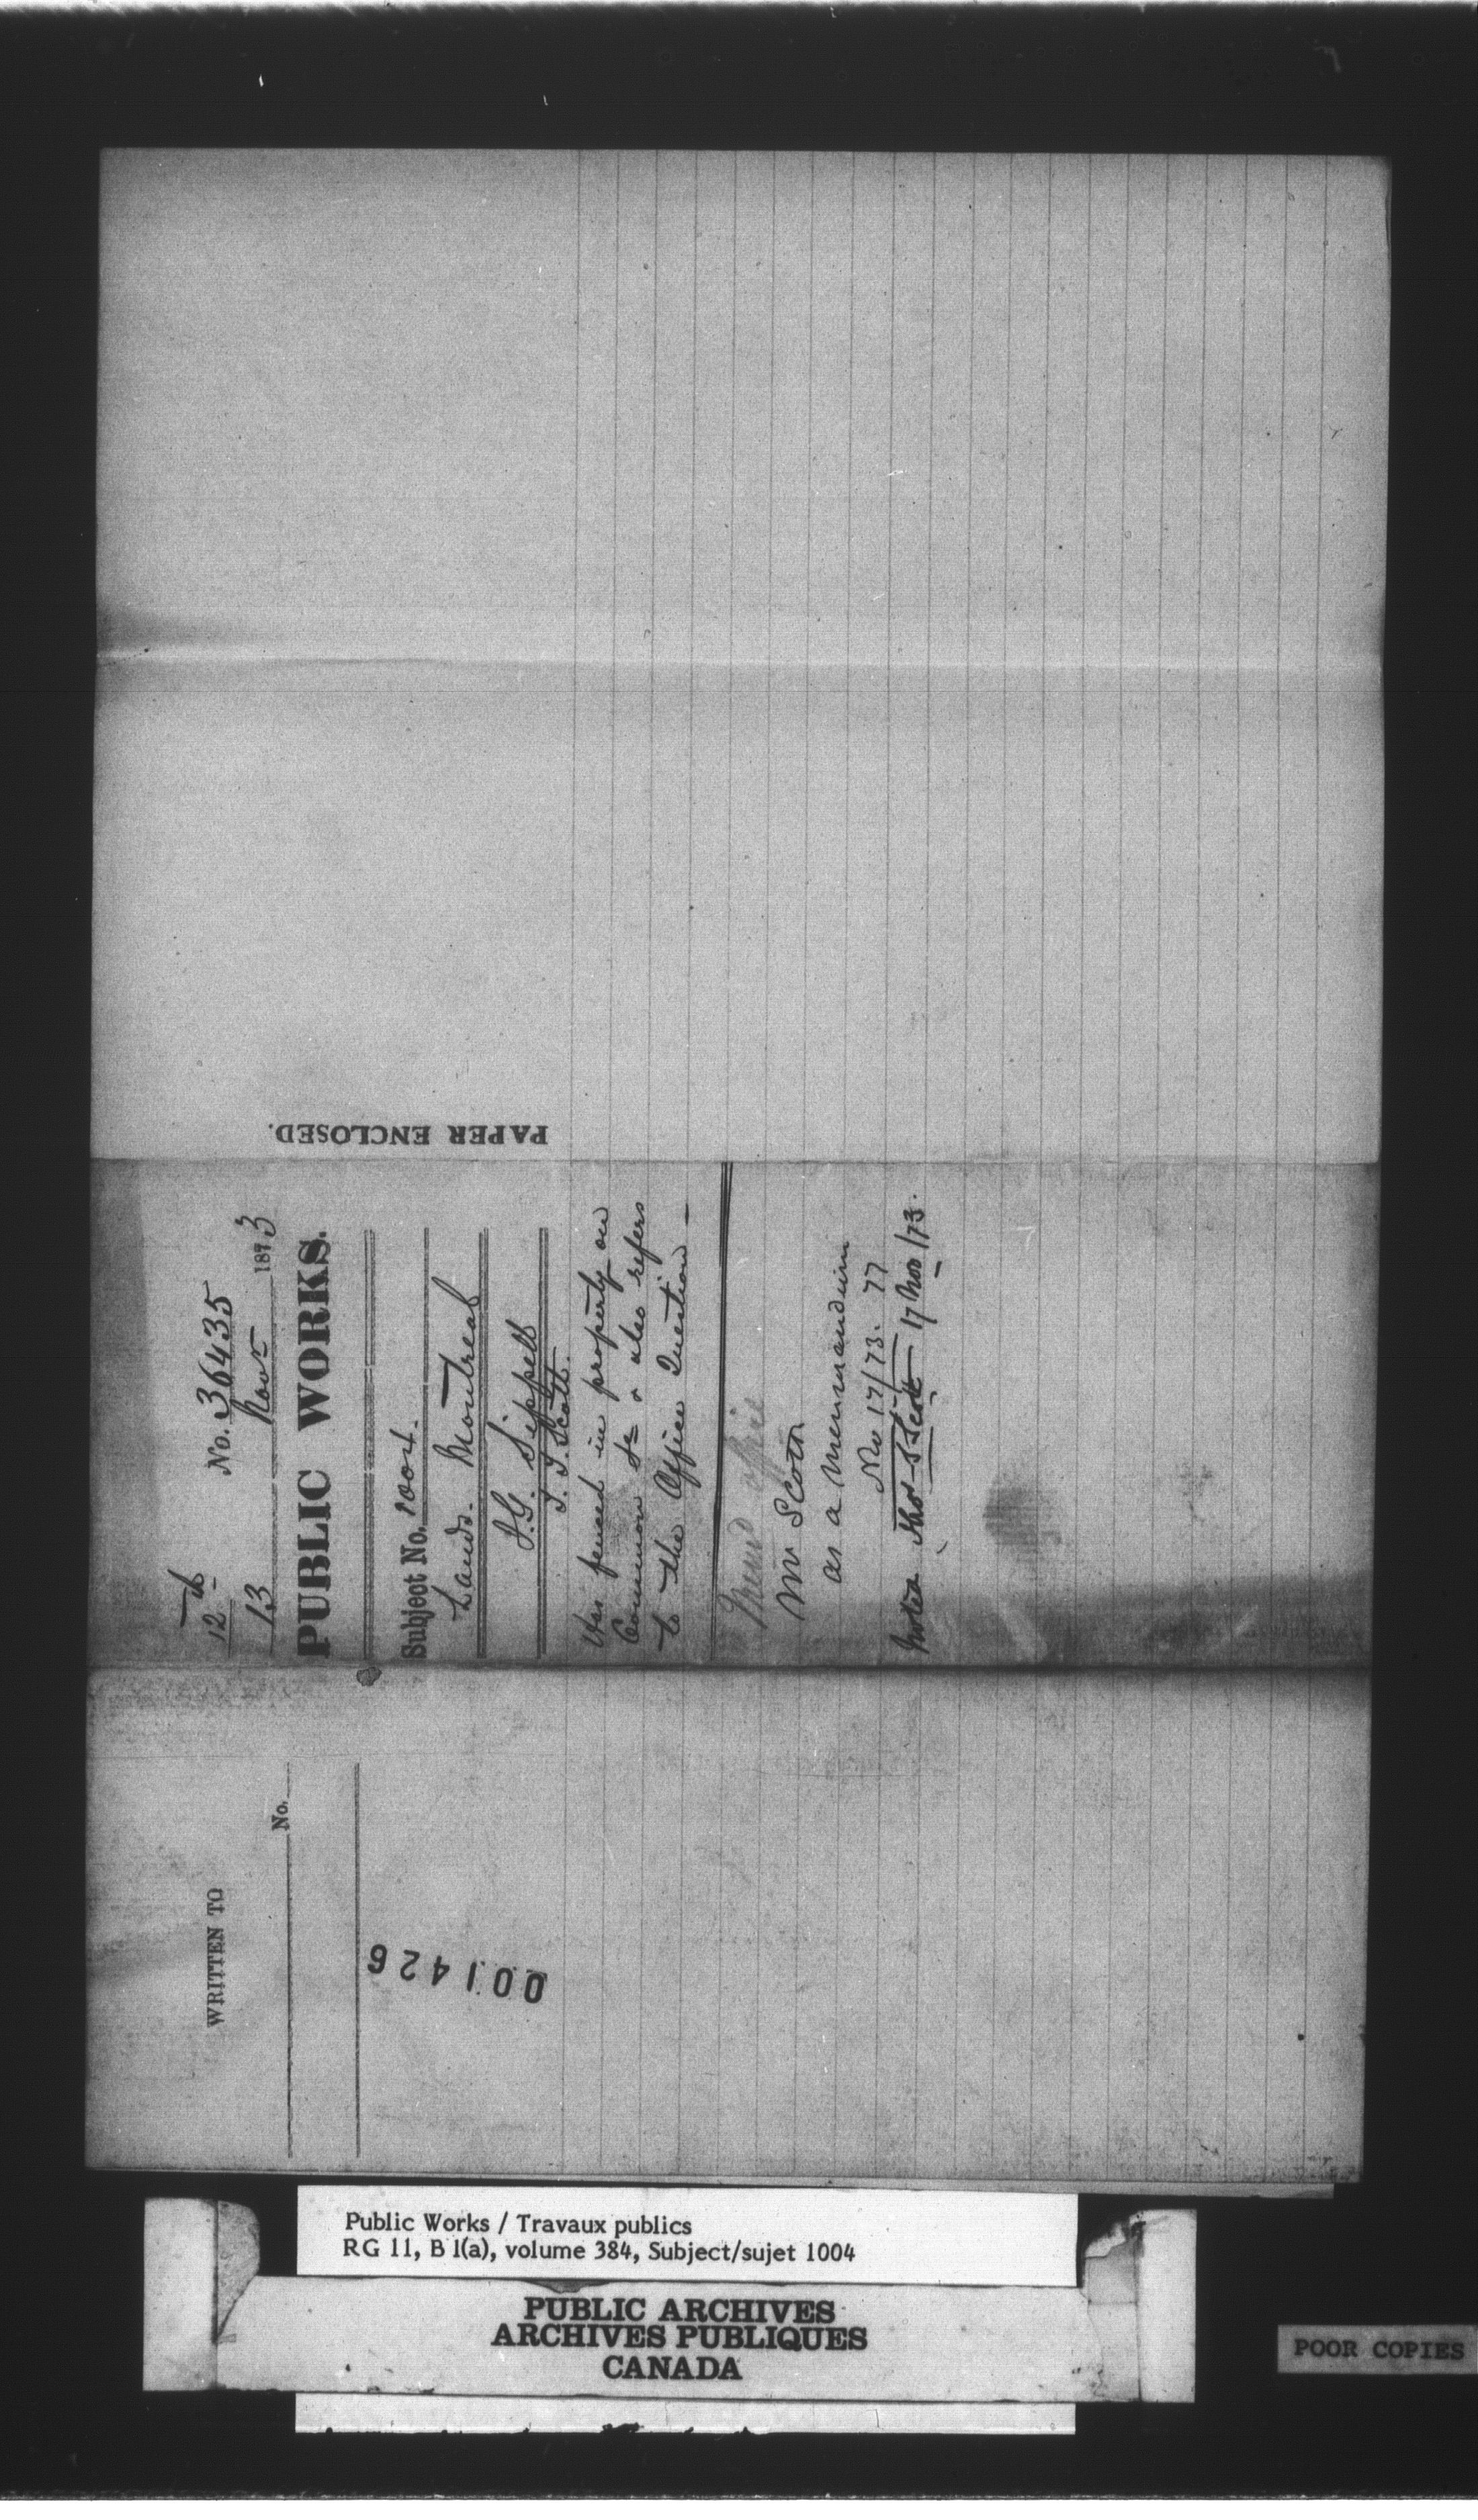 PAPER ENCLOSED.
12th
No. 36435
13 Novr 1873
PUBLIC WORKS.
Subject No. 1004.
Lands. Montreal
J.G. Sippell
T. T. Scott.
Has fenced in property on
Common &c & also refers
to the Office Question —
Mr Scott
as a memorandum
No 17/73. 77
Noted Thos S Scott 17 Nov/73.
WRITTEN TO
No.
001426
Public Works / Travaux publics
RG 11, B 1(a), volume 384, Subject/sujet 1004
PUBLIC ARCHIVES
ARCHIVES PUBLIQUES
CANADA
POOR COPIES